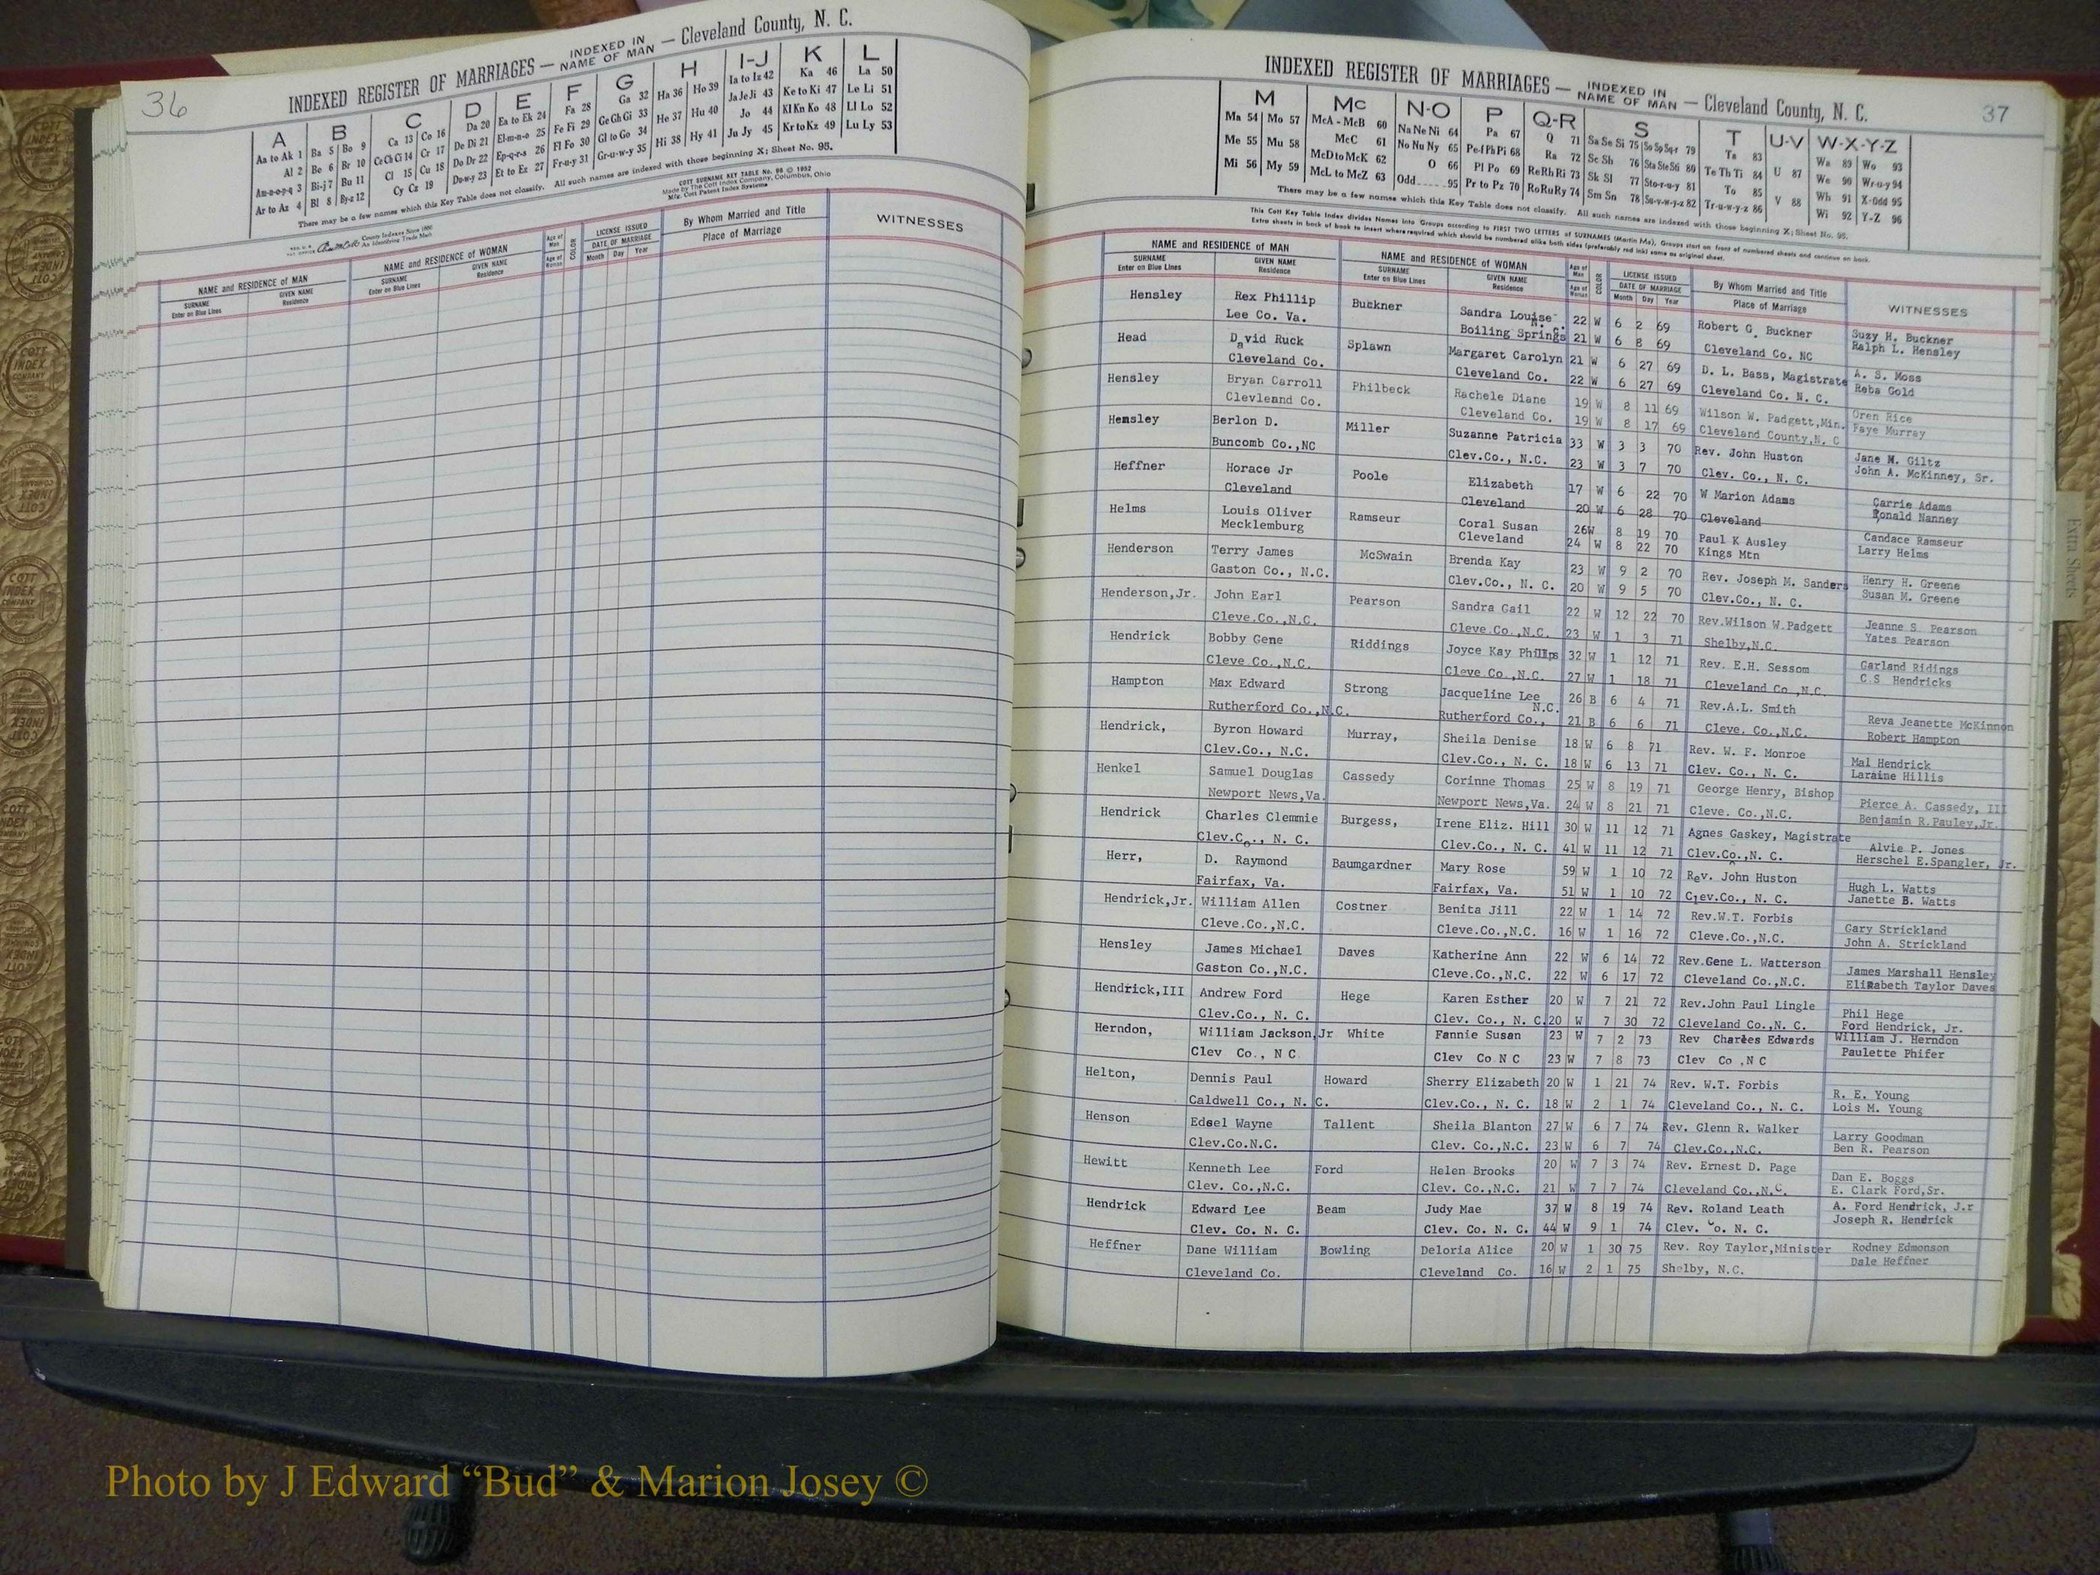 36
INDEXED REGISTER OF MARRIAGES — INDEXED IN NAME OF MAN — Cleveland County, N. C.
A B C D E F G H I-J K L
Aa to Ak 1 Ba 5 Bo 9 Ca 13 Co 16 Da 20 Ea to Ek 24 Fa 28 Ga 32 Ha 36 Ho 39 Ia to Iz 42 Ka 46 La 50
Al 2 Be 6 Br 10 Ce Ch Ci 14 Cr 17 De Di 21 El-m-n-o 25 Fe Fi 29 Ge Gh Gi 33 He 37 Hu 40 Ja Je Ji 43 Ke to Ki 47 Le Li 51
Am-n-o-p-q 3 Bi-j 7 Bu 11 Cl 15 Cu 18 Do Dr 22 Ep-q-r-s 26 Fl Fo 30 Gl to Go 34 Hi 38 Hy 41 Jo 44 Kl Kn Ko 48 Ll Lo 52
Ar to Az 4 Bl 8 By-z 12 Cy Cz 19 Du-w-y 23 Et to Ez 27 Fr-u-y 31 Gr-u-w-y 35 Ju Jy 45 Kr to Kz 49 Lu Ly 53
There may be a few names which this Key Table does not classify. All such names are indexed with those beginning X; Sheet No. 95.
COTT SURNAME KEY TABLE No. 96 © 1952
Made by The Cott Index Company, Columbus, Ohio
Mfg. Cott Patent Index Systems
County Indexes Since 1880
An Identifying Trade Mark
NAME and RESIDENCE OF MAN NAME and RESIDENCE OF WOMAN Age of Man Age of Woman COLOR LICENSE ISSUED DATE OF MARRIAGE By Whom Married and Title WITNESSES
SURNAME Enter on Blue Lines GIVEN NAME Residence SURNAME Enter on Blue Lines GIVEN NAME Residence Month Day Year Place of Marriage
INDEXED REGISTER OF MARRIAGES — INDEXED IN NAME OF MAN — Cleveland County, N. C.
37
M Mc N-O P Q-R S T U-V W-X-Y-Z
Ma 54 Mo 57 McA - McB 60 Na Ne Ni 64 Pa 67 Q 71 Sa Se Si 75 So Sp Sq-r 79 Ta 83 U 87 Wa 89 Wo 93
Me 55 Mu 58 McC 61 No Nu Ny 65 Pe-f Ph Pi 68 Ra 72 Sc Sh 76 Sta Ste Sti 80 Te Th Ti 84 We 90 Wr-u-y 94
Mi 56 My 59 McD to McK 62 O 66 Pl Po 69 Re Rh Ri 73 Sk Sl 77 Sto-r-u-y 81 To 85 V 88 Wh 91 X-Odd 95
McL to McZ 63 Odd 95 Pr to Pz 70 Ro Ru Ry 74 Sm Sn 78 Su-v-w-y-z 82 Tr-u-w-y-z 86 Wi 92 Y-Z 96
There may be a few names which this Key Table does not classify. All such names are indexed with those beginning X; Sheet No. 95.
This Cott Key Table Index divides Names into Groups according to FIRST TWO LETTERS of SURNAMES (Martin Ma), Groups start on front of numbered sheets and continue on back.
Extra sheets in back of book to insert where required which should be numbered alike both sides (preferably red ink) same as original sheet.
NAME and RESIDENCE OF MAN NAME and RESIDENCE OF WOMAN Age of Man Age of Woman COLOR LICENSE ISSUED DATE OF MARRIAGE By Whom Married and Title WITNESSES
SURNAME Enter on Blue Lines GIVEN NAME Residence SURNAME Enter on Blue Lines GIVEN NAME Residence Month Day Year Place of Marriage
Hensley Rex Phillip Buckner Sandra Louise 22 W 6 2 69 Robert G. Buckner Suzy H. Buckner
Lee Co. Va. Boiling Springs N. C. 21 W 6 8 69 Cleveland Co. NC Ralph L. Hensley
Head David Ruck Splawn Margaret Carolyn 21 W 6 27 69 D. L. Bass, Magistrate A. S. Moss
Cleveland Co. Cleveland Co. 22 W 6 27 69 Cleveland Co. N. C. Reba Gold
Hensley Bryan Carroll Philbeck Rachele Diane 19 W 8 11 69 Wilson W. Padgett,Min. Oren Rice
Clevleand Co. Cleveland Co. 19 W 8 17 69 Cleveland County,N. C Faye Murray
Hensley Berlon D. Miller Suzanne Patricia 33 W 3 3 70 Rev. John Huston Jane M. Giltz
Buncomb Co.,NC Clev.Co., N.C. 23 W 3 7 70 Clev. Co., N. C. John A. McKinney, Sr.
Heffner Horace Jr Poole Elizabeth 17 W 6 22 70 W Marion Adams Carrie Adams
Cleveland Cleveland 20 W 6 28 70 Cleveland Ronald Nanney
Helms Louis Oliver Ramseur Coral Susan 26W 8 19 70 Paul K Ausley Candace Ramseur
Mecklemburg Cleveland 24 W 8 22 70 Kings Mtn Larry Helms
Henderson Terry James McSwain Brenda Kay 23 W 9 2 70 Rev. Joseph M. Sanders Henry H. Greene
Gaston Co., N.C. Clev.Co., N. C. 20 W 9 5 70 Clev.Co., N. C. Susan M. Greene
Henderson,Jr. John Earl Pearson Sandra Gail 22 W 12 22 70 Rev.Wilson W.Padgett Jeanne S. Pearson
Cleve.Co.,N.C. Cleve.Co.,N.C. 23 W 1 3 71 Shelby,N.C. Yates Pearson
Hendrick Bobby Gene Riddings Joyce Kay Phillips 32 W 1 12 71 Rev. E.H. Sessom Garland Ridings
Cleve Co.,N.C. Cleve Co.,N.C. 27 W 1 18 71 Cleveland Co.,N.C. C.S Hendricks
Hampton Max Edward Strong Jacqueline Lee 26 B 6 4 71 Rev.A.L. Smith Reva Jeanette McKinnon
Rutherford Co.,N.C. Rutherford Co., N.C. 21 B 6 6 71 Cleve. Co.,N.C. Robert Hampton
Hendrick, Byron Howard Murray, Sheila Denise 18 W 6 8 71 Rev. W. F. Monroe Mal Hendrick
Clev.Co., N.C. Clev.Co., N. C. 18 W 6 13 71 Clev. Co., N. C. Laraine Hillis
Henkel Samuel Douglas Cassedy Corinne Thomas 25 W 8 19 71 George Henry, Bishop Pierce A. Cassedy, III
Newport News,Va. Newport News,Va. 24 W 8 21 71 Cleve. Co.,N.C. Benjamin R.Pauley,Jr.
Hendrick Charles Clemmie Burgess, Irene Eliz. Hill 30 W 11 12 71 Agnes Gaskey, Magistrate Alvie P. Jones
Clev.Co., N. C. Clev.Co., N. C. 41 W 11 12 71 Clev.Co.,N. C. Herschel E.Spangler, Jr.
Herr, D. Raymond Baumgardner Mary Rose 59 W 1 10 72 Rev. John Huston Hugh L. Watts
Fairfax, Va. Fairfax, Va. 51 W 1 10 72 Clev.Co., N. C. Janette B. Watts
Hendrick,Jr. William Allen Costner Benita Jill 22 W 1 14 72 Rev.W.T. Forbis Gary Strickland
Cleve.Co.,N.C. Cleve.Co.,N.C. 16 W 1 16 72 Cleve.Co.,N.C. John A. Strickland
Hensley James Michael Daves Katherine Ann 22 W 6 14 72 Rev.Gene L. Watterson James Marshall Hensley
Gaston Co.,N.C. Cleve.Co.,N.C. 22 W 6 17 72 Cleveland Co.,N.C. Elizabeth Taylor Daves
Hendrick,III Andrew Ford Hege Karen Esther 20 W 7 21 72 Rev.John Paul Lingle Phil Hege
Clev.Co., N. C. Clev. Co., N. C. 20 W 7 30 72 Cleveland Co.,N. C. Ford Hendrick, Jr.
Herndon, William Jackson,Jr White Fannie Susan 23 W 7 2 73 Rev Charles Edwards William J. Herndon
Clev Co., N C Clev Co N C 23 W 7 8 73 Clev Co ,N C Paulette Phifer
Helton, Dennis Paul Howard Sherry Elizabeth 20 W 1 21 74 Rev. W.T. Forbis R. E. Young
Caldwell Co., N. C. Clev.Co., N. C. 18 W 2 1 74 Cleveland Co., N. C. Lois M. Young
Henson Edsel Wayne Tallent Sheila Blanton 27 W 6 7 74 Rev. Glenn R. Walker Larry Goodman
Clev.Co.N.C. Clev. Co.,N.C. 23 W 6 7 74 Clev.Co.,N.C. Ben R. Pearson
Hewitt Kenneth Lee Ford Helen Brooks 20 W 7 3 74 Rev. Ernest D. Page Dan E. Boggs
Clev. Co.,N.C. Clev. Co.,N.C. 21 W 7 7 74 Cleveland Co.,N.C. E. Clark Ford,Sr.
Hendrick Edward Lee Beam Judy Mae 37 W 8 19 74 Rev. Roland Leath A. Ford Hendrick, J.r
Clev. Co. N. C. Clev. Co. N. C. 44 W 9 1 74 Clev. Co. N. C. Joseph R. Hendrick
Heffner Dane William Bowling Deloria Alice 20 W 1 30 75 Rev. Roy Taylor,Minister Rodney Edmonson
Cleveland Co. Cleveland Co. 16 W 2 1 75 Shelby, N.C. Dale Heffner
Extra Sheets
Photo by J Edward “Bud” & Marion Josey ©